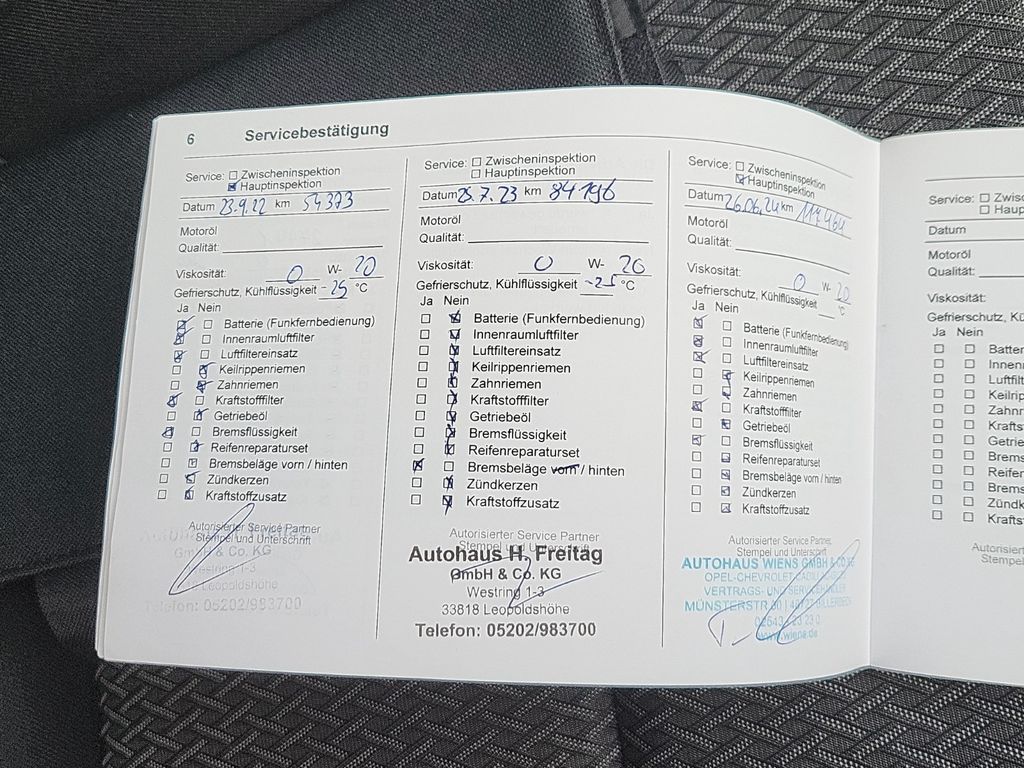 6 Servicebestätigung
Service: ☐ Zwischeninspektion
☒ Hauptinspektion
Datum 23.9.22 km 54373
Motoröl
Qualität:
Viskosität: 0 W- 20
Gefrierschutz, Kühlflüssigkeit -25 °C
Ja Nein
☒ ☐ Batterie (Funkfernbedienung)
☒ ☐ Innenraumluftfilter
☒ ☐ Luftfiltereinsatz
☐ ☒ Keilrippenriemen
☐ ☒ Zahnriemen
☒ ☐ Kraftstofffilter
☐ ☒ Getriebeöl
☒ ☐ Bremsflüssigkeit
☐ ☒ Reifenreparaturset
☐ ☒ Bremsbeläge vorn / hinten
☐ ☒ Zündkerzen
☐ ☒ Kraftstoffzusatz
Autorisierter Service Partner
Stempel und Unterschrift
GmbH & Co. KG
Westring 1-3
Leopoldshöhe
Telefon: 05202/983700
Service: ☐ Zwischeninspektion
☐ Hauptinspektion
Datum 25.7.23 km 84196
Motoröl
Qualität:
Viskosität: 0 W- 20
Gefrierschutz, Kühlflüssigkeit -25 °C
Ja Nein
☐ ☒ Batterie (Funkfernbedienung)
☐ ☒ Innenraumluftfilter
☐ ☒ Luftfiltereinsatz
☐ ☒ Keilrippenriemen
☐ ☒ Zahnriemen
☐ ☒ Kraftstofffilter
☐ ☒ Getriebeöl
☐ ☒ Bremsflüssigkeit
☐ ☒ Reifenreparaturset
☒ ☐ Bremsbeläge vorn / hinten
☐ ☒ Zündkerzen
☐ ☒ Kraftstoffzusatz
Autorisierter Service Partner
Stempel und Unterschrift
Autohaus H. Freitag
GmbH & Co. KG
Westring 1-3
33818 Leopoldshöhe
Telefon: 05202/983700
Service: ☐ Zwischeninspektion
☒ Hauptinspektion
Datum 26.06.24 km 117.464
Motoröl
Qualität:
Viskosität: 0 W- 20
Gefrierschutz, Kühlflüssigkeit °C
Ja Nein
☒ ☐ Batterie (Funkfernbedienung)
☒ ☐ Innenraumluftfilter
☒ ☐ Luftfiltereinsatz
☐ ☒ Keilrippenriemen
☐ ☒ Zahnriemen
☒ ☐ Kraftstofffilter
☐ ☒ Getriebeöl
☒ ☐ Bremsflüssigkeit
☐ ☒ Reifenreparaturset
☐ ☒ Bremsbeläge vorn / hinten
☐ ☒ Zündkerzen
☐ ☒ Kraftstoffzusatz
Autorisierter Service Partner
Stempel und Unterschrift
AUTOHAUS WIENS GMBH & CO KG
OPEL-CHEVROLET-
VERTRAGS- UND
MÜNSTERSTR. BILLERBECK
www.wiens.de
Service: ☐ Zwisc
☐ Haup
Datum
Motoröl
Qualität:
Viskosität:
Gefrierschutz, Kü
Ja Nein
☐ ☐ Batter
☐ ☐ Innen
☐ ☐ Luftfilt
☐ ☐ Keilrip
☐ ☐ Zahnr
☐ ☐ Krafts
☐ ☐ Getrie
☐ ☐ Brems
☐ ☐ Reifen
☐ ☐ Brems
☐ ☐ Zündk
☐ ☐ Krafts
Autorisiert
Stempel